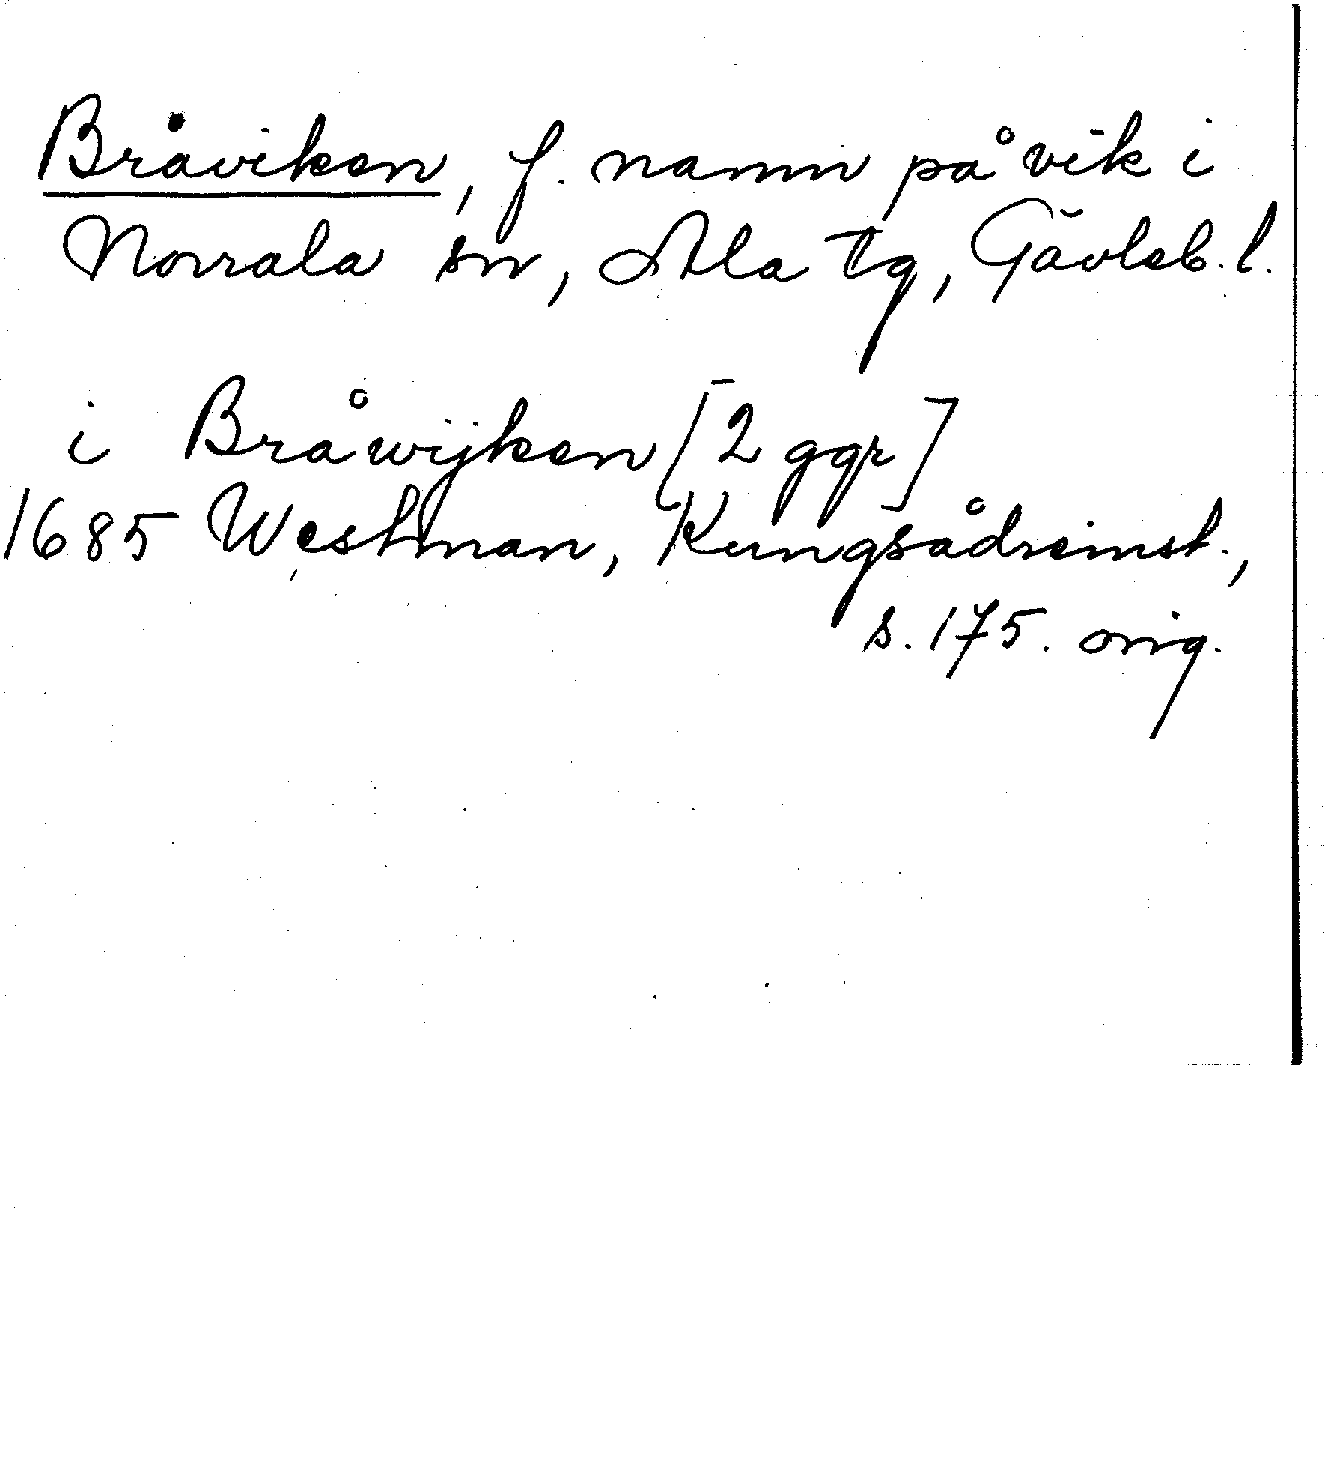 Bråviken, f. namn på vik i
Norrala sn, Ala tg, Gävleb. l.
i Bråwijken [2 ggr]
1685 Westman, Kungsådreinst.,
s. 175. orig.